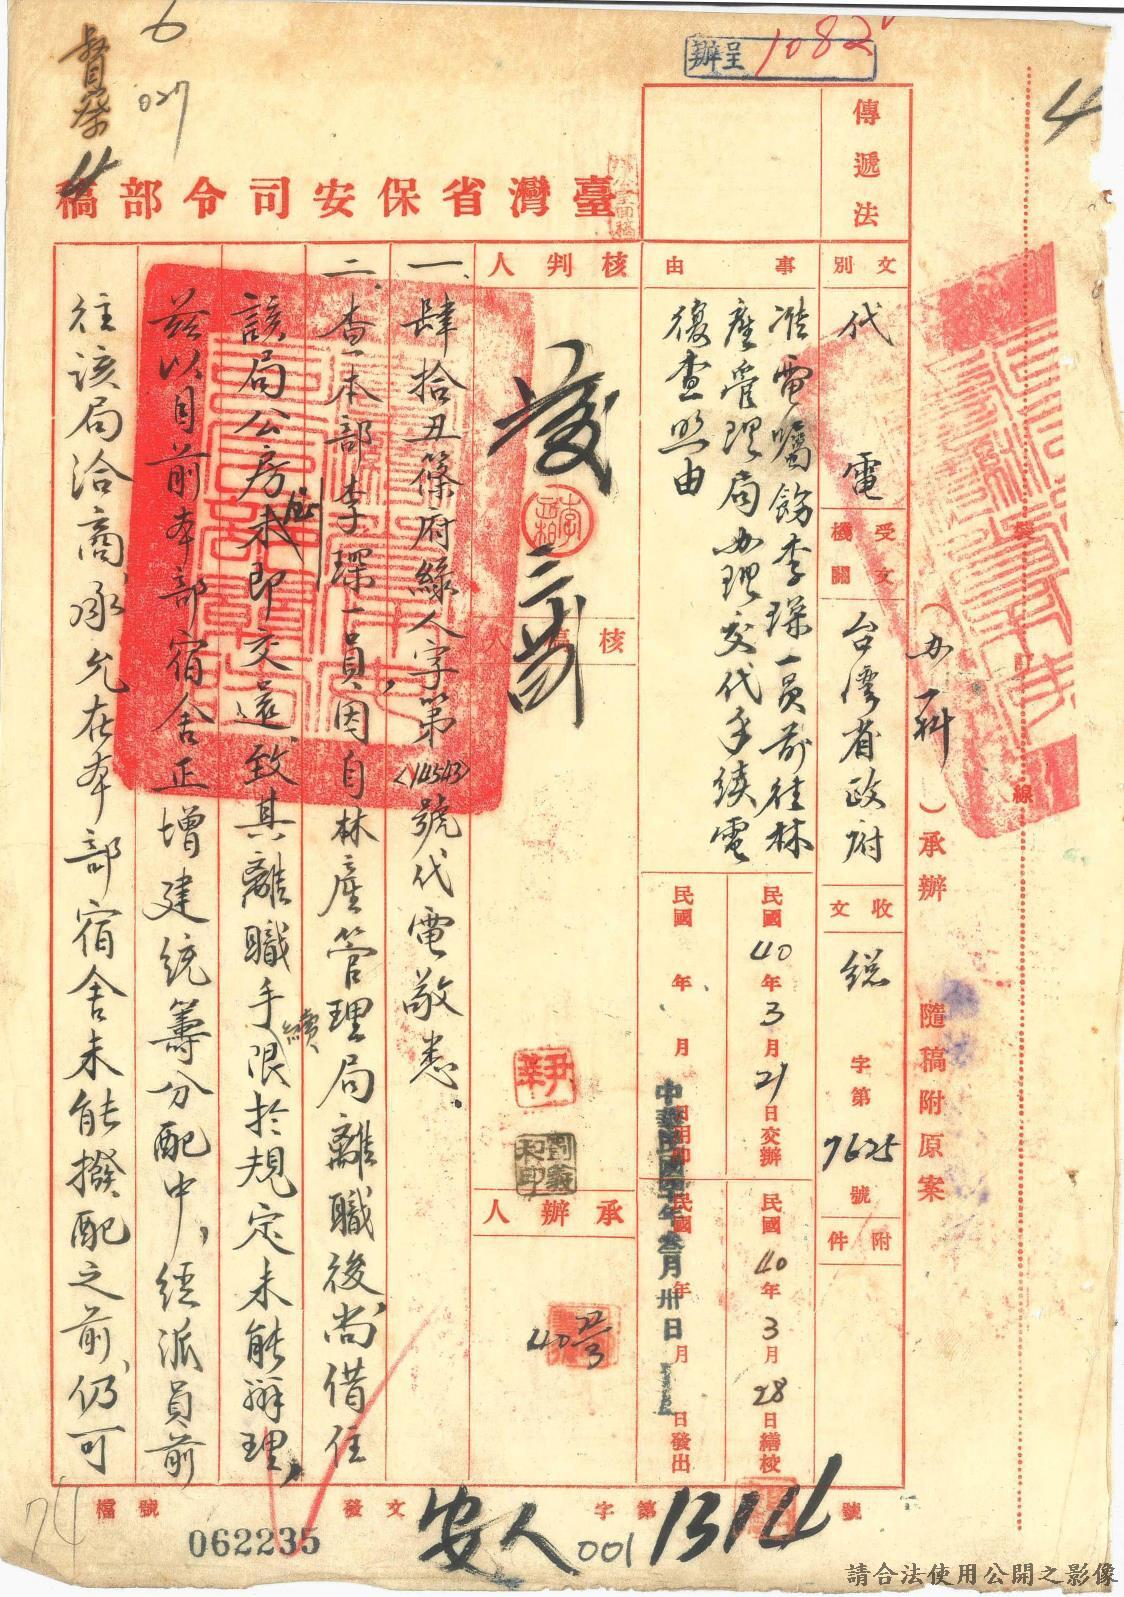 督察
6
027
4
呈辦
1082
臺灣省保安司令部稿
傳遞法
文別
代電
受文機關
台灣省政府
收文
總字第7625號
附件
事由
准電囑飭李琛一員前往林
產管理局办理交代手續電
復查照由
民國40年3月21日交辦
民國40年3月28日繕校
民國 年 月 日用印
民國 年 月 日發出
中華民國四十年叁月卅日
(办一科)承辦
隨稿附原案
裝訂線
核判人
核稿人
承辦人
尹莘
40
一、肆拾丑篠府綠人字第(14543)號代電敬悉.
二、查本部李琛一員,因自林產管理局離職後,尚借住
該局公房未即交還,致其離職手續限於規定未能辦理,
茲以目前本部宿舍正增建統籌分配中,經派員前
往該局洽商,承允在本部宿舍未能撥配之前,仍可
檔號
062235
發文
安人字第13114號
001
74
請合法使用公開之影像